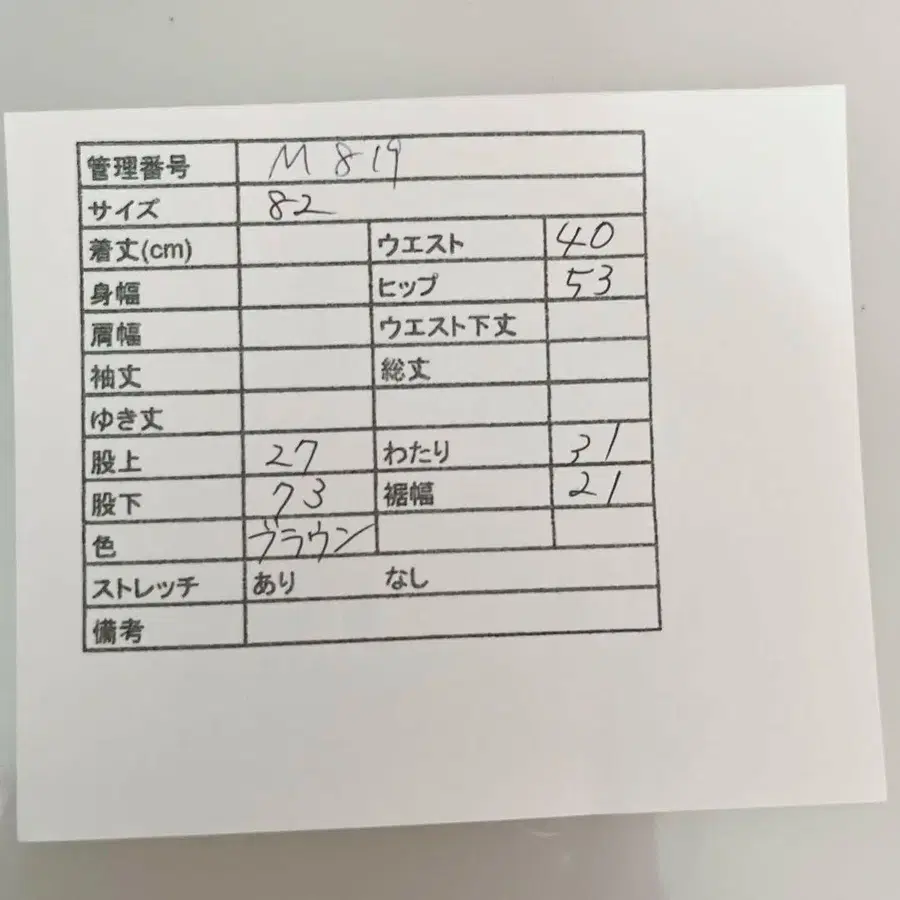 管理番号 M819
サイズ 82
着丈(cm) ウエスト 40
身幅 ヒップ 53
肩幅 ウエスト下丈
袖丈 総丈
ゆき丈
股上 27 わたり 31
股下 73 裾幅 21
色 ブラウン
ストレッチ あり なし
備考